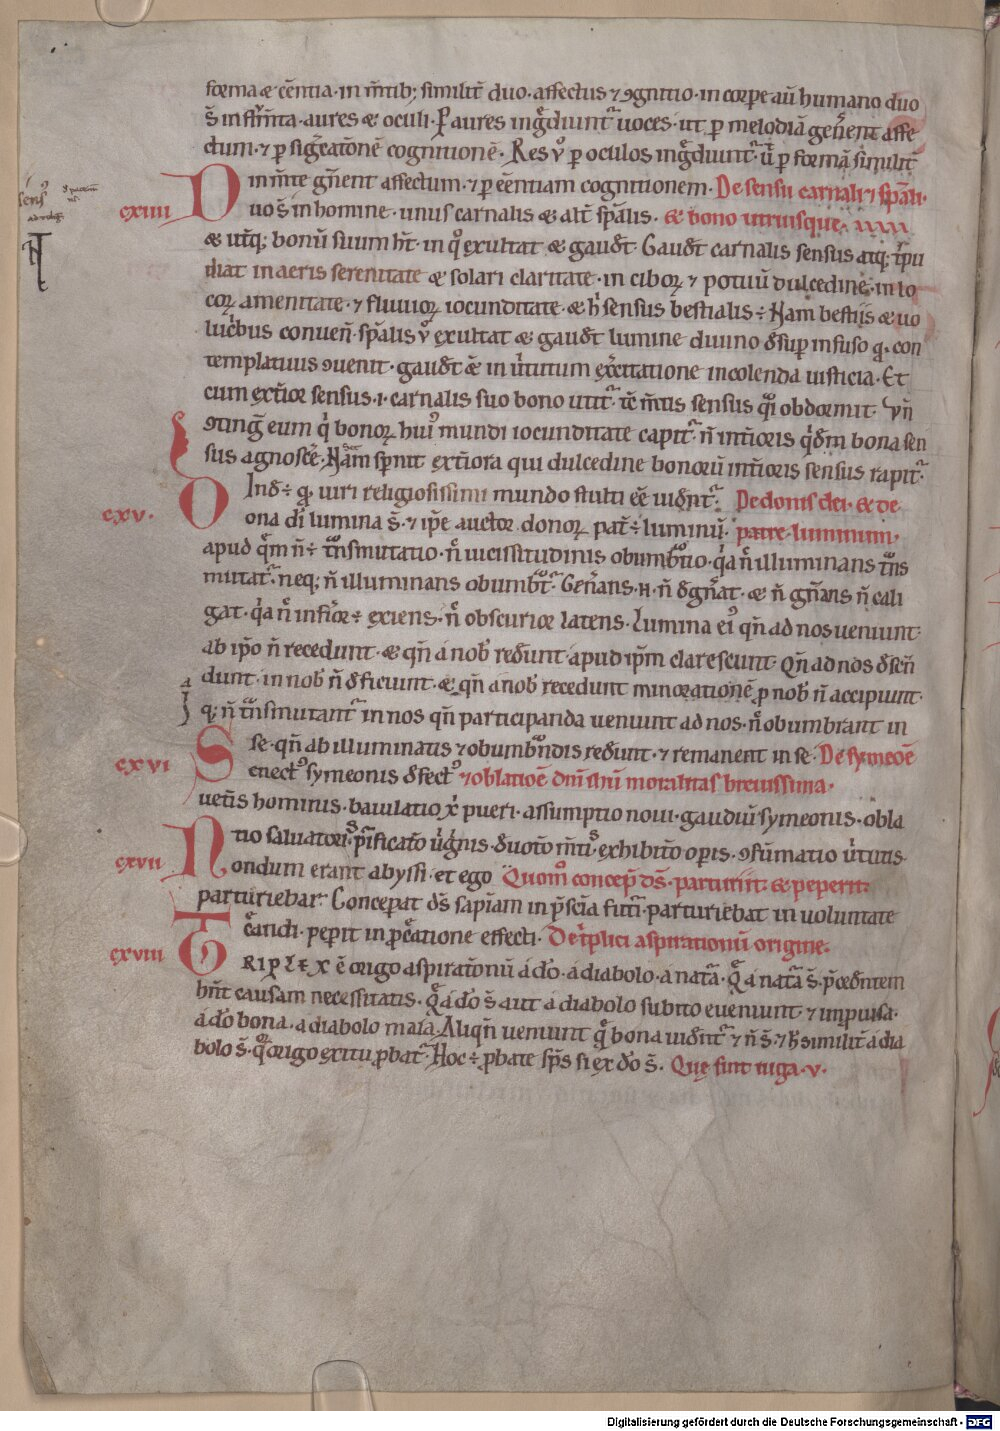 forma & eēntia. in m̄tib; similit̄ duo. affectus ⁊ ꝯgnitio. in corpe aū humano duo
s̄ instrm̄ta. aures & oculi. P aures ingͣdiunt᷑ uoces. ut p melodiā gen̄ent affe
ctum. ⁊ p significatōnē cognitionē. Res ꝟ p oculos ingͣdiunt᷑. ut p formā similit̄
in m̄te gn̄ent affectum. ⁊ p eēntiam cognitionem. De sensu carnali ⁊ spāli.
cxiiii Duo s̄ in homine. unus carnalis & alt̄ sp̄alis. & bono utriusque.
& utq; bonū suum ht̄. in qͦ exultat & gaudet. Gaudt̄ carnalis sensus atq; tͥpu
diat in aeris serenitate & solari claritate. in ciboꝝ ⁊ potuū dulcedine. in lo
coꝝ amenitate. ⁊ fluuioꝝ iocunditate. & hͥ sensus bestialis ÷ Nam bestiis & uo
lucͥbus conuen̄. sp̄alis ꝟ exultat & gaudt̄ lumine diuino desup infuso qͣ con
templatiuis ꝯuenit. gaudt̄ & in uͥtutum ex̄citatione in colenda iusticia. Et
cum ext̄ior sensus .i. carnalis suo bono utit᷑. tē m̄tis sensus qͣi obdormit. Vn̄
ꝯtinḡ eum qͥ bonoꝝ huiꝰ mundi iocunditate capit᷑. n̄ int̄ioris qͥdm bona sen
sus agnosce. Nam sp̄nit ext̄iora qui dulcedine bonoꝝ int̄ioris sensus rapit᷑.
Ind ÷ qͣ uiri religiosissimi mundo stulti eē uident᷑. De donis dei. & de
cxv. Dona di lumina s̄. ⁊ ipe auctor donoꝝ pat̄ ÷ luminū. patre luminum.
apud qͣm n̄ ÷ tͣnsmutatio. nͨ uicissitudinis obumbͣtio. qͥa nͨ illuminans tͣns
mutat᷑. neq; n̄ illuminans obumbͣt᷑. Gen̄ans .n. n̄ degn̄at. & n̄ gn̄ans n̄ cali
gat. qͥa nͨ inferior ÷ exiens. nͨ obscurior latens. Lumina eiꝰ qn̄ ad nos ueniunt.
ab ipo n̄ recedunt. & qn̄ a nob̄ redeunt apud ipm clarescunt. Qn̄ ad nos descen̄
dunt. in nob̄ n̄ deficiunt. & qn̄ a nob̄ recedunt minorationē ꝓ nob̄ n̄ accipiunt.
q; n̄ tͣnsmutant᷑ in nos qn̄ participanda ueniunt ad nos. nͨ obumbrant in
se. qn̄ ab illuminatis ⁊ obumbͣndis redeunt. ⁊ remanent in se. De symeoē
cxvi Senectꝰ symeonis defectꝰ ⁊ oblatioē dn̄i ihū moralitas breuissima.
uet̄is hominis. baiulatio xͥ pueri. assumptio noui. gaudiū symeonis. obla
tio saluatoris. pͥficatō uͥginis. deuotō m̄tis. exhibitō opis. ꝯsūmatio uͥtutis.
cxvii Nondum erant abyssi. et ego Quom̄ concep̄ ds̄. parturiit. & peperit.
parturiebar. Concepat ds̄ sapiam in p̄scia futi. parturiebat in uoluntate
cͣandi. pepit in pͨatione effecti. De tͥplici aspirationū origine.
cxviii TRIPLEX ē origo aspiratōnū a do. a diabolo. a natͣa. Qͣ a natͣa s̄. p̄cedentem
hn̄t causam necessitatis. Qͣ a do s̄ aut a diabolo subito eueniunt. ⁊ impuisa.
a do bona. a diabolo mala. Aliqn̄ ueniunt qͣ bona uident᷑ ⁊ n̄ s̄. ⁊ h̄ similit̄ a dia
bolo s̄. qͣꝝ origo exitu ꝓbat᷑. Hoc ÷ ꝓbate sp̄s si ex do s̄. Que sint iuga .v.
Digitalisierung gefördert durch die Deutsche Forschungsgemeinschaft - DFG